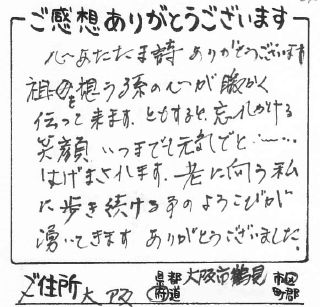 ご感想ありがとうございます
心あたたま詩 ありがとうございます
祖母を想う孫の心が暖かく
伝って来ます。ともすると、忘れかける
笑顔。いつまでも元気でと……
はげまされます。老に向う私
に歩き続ける事のよろこびが
湧いてきます ありがとうございました。
ご住所 大阪市鶴見
都道府県 市区町郡